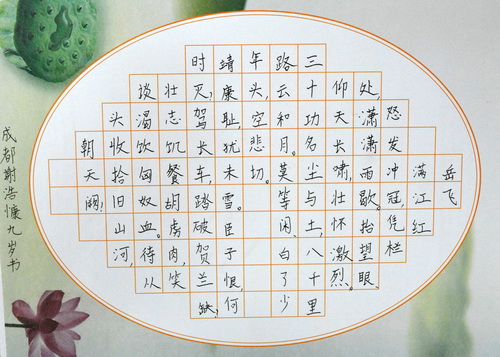 岳飞
满江红
怒发冲冠,凭栏
处潇潇雨歇。抬望眼
仰天长啸,壮怀激烈。
三十功名尘与土,八十里
路云和月。莫等闲,白了少
年头,空悲切。
靖康耻,犹未雪。臣子恨,何
时灭,驾长车,踏破贺兰缺,
壮志饥餐胡虏肉,笑
谈渴饮匈奴血。待从
头收拾旧山河,
朝天阙!
成都谢浩慷九岁书